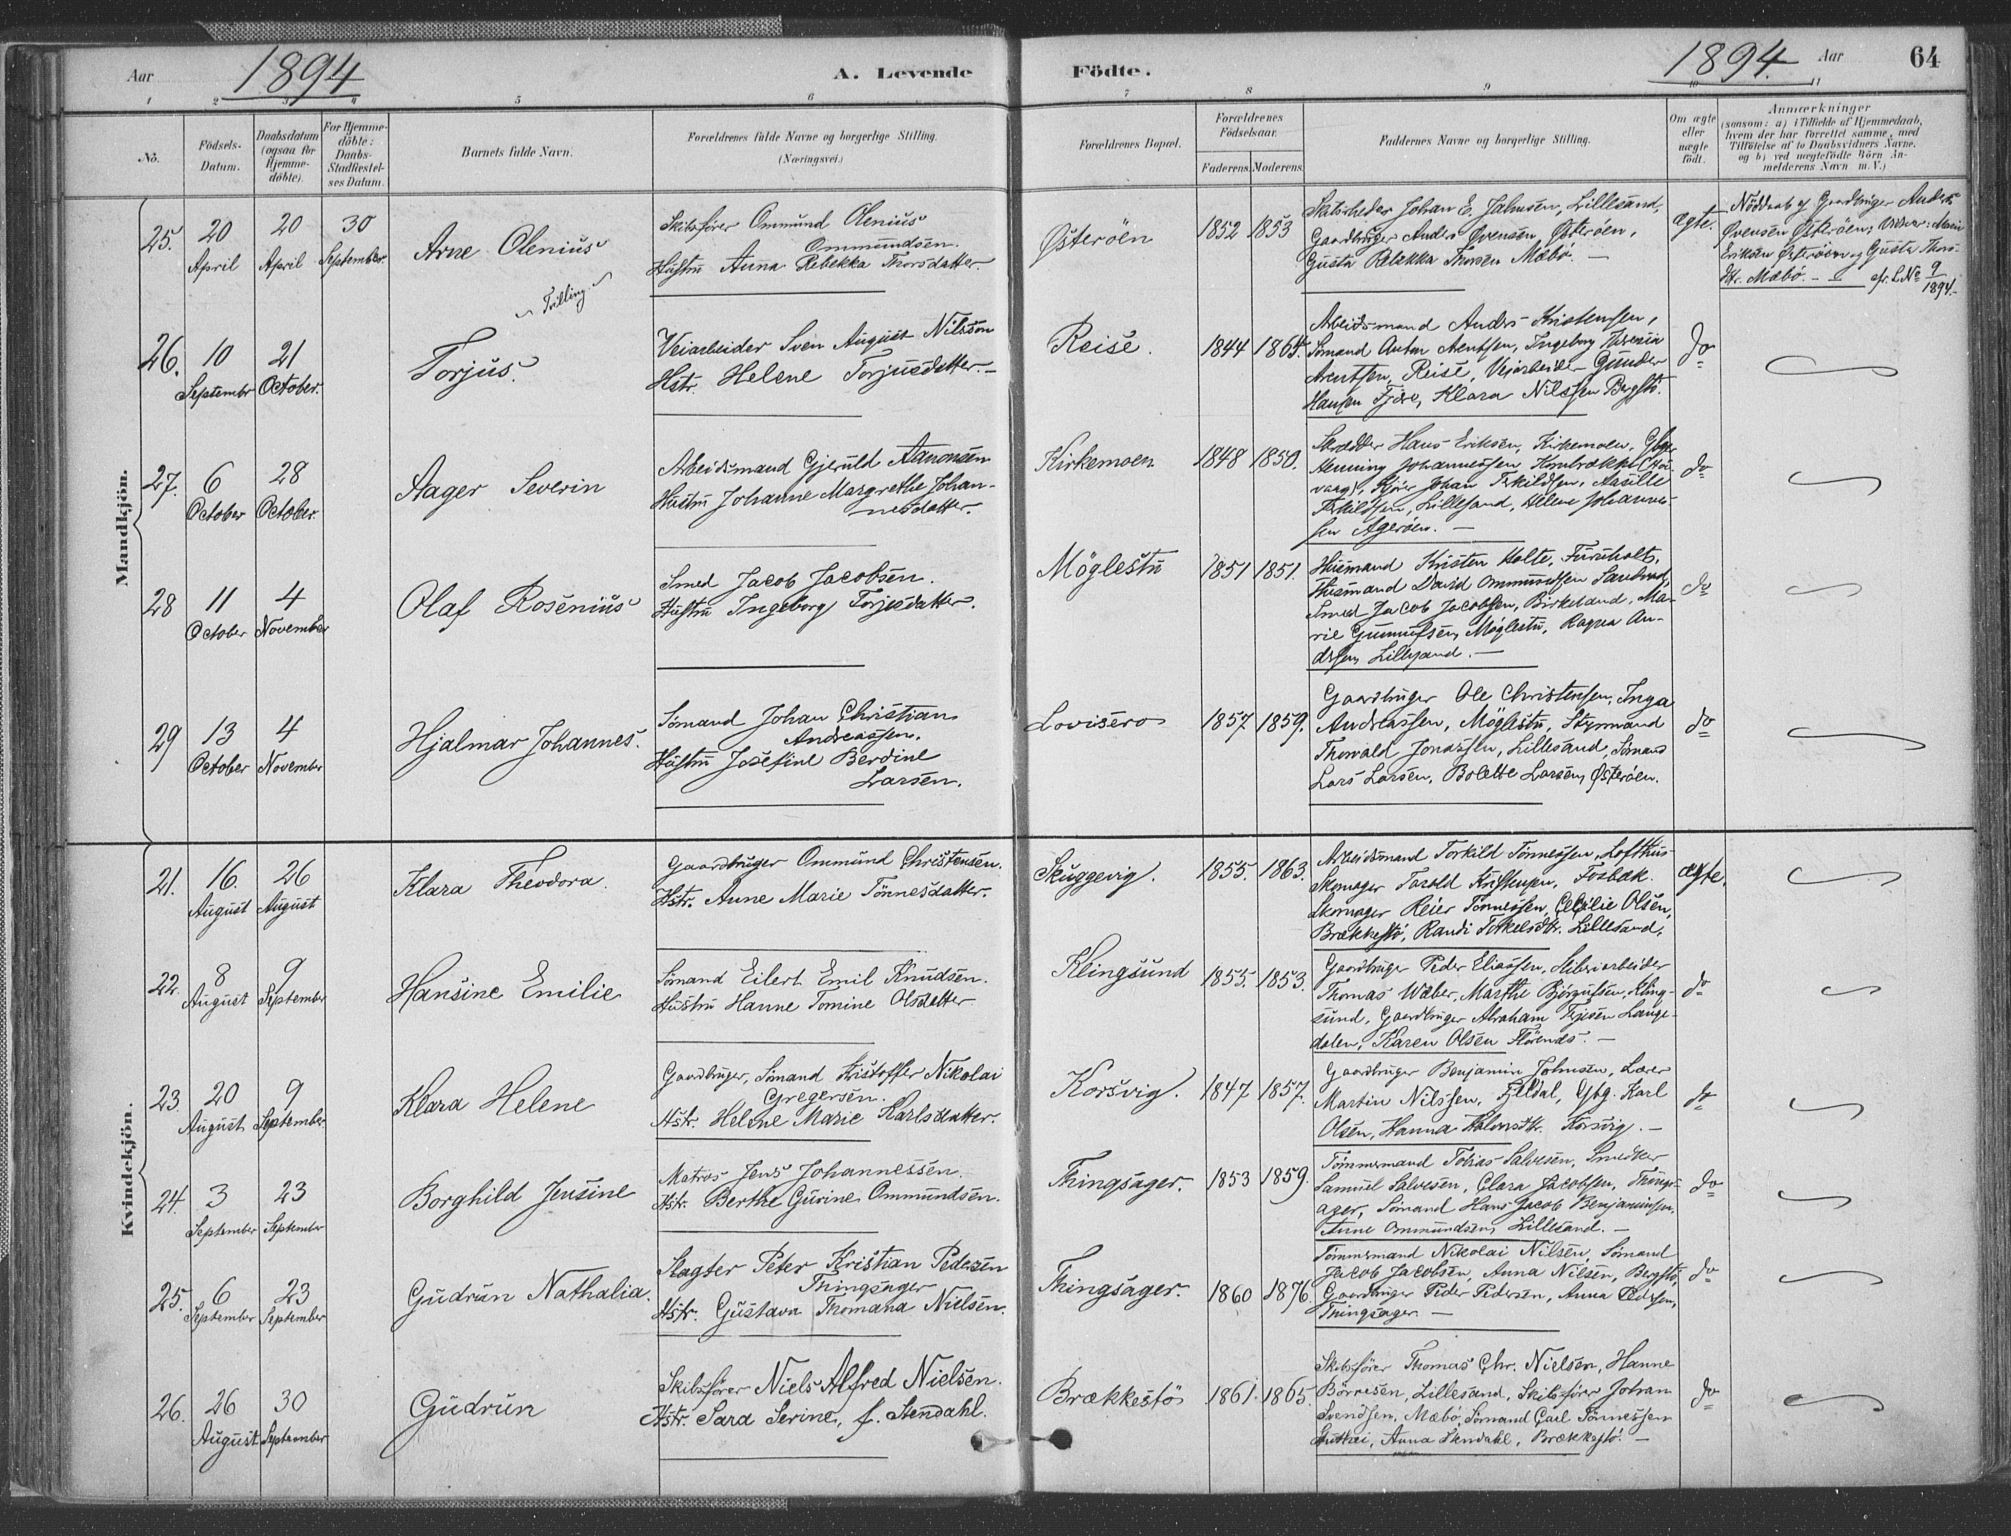 Aar 1894 A. Levende
Födte. 1894. Aar 64
1 2 3 4 5 6 7 8 9 10 11
No.
Födsels-
Datum.
Daabsdatum
(ogsaa for
Hjemme-
döbte).
For Hjemme-
döbte:
Daabs-
Stadfæstel-
ses Datum.
Barnets fulde Navn.
Forældrenes fulde Navne og borgerlige Stilling.
(Næringsvei.)
Forældrenes Bopæl.
Forældrenes
Födselsaar.
Faderens. Moderens.
Faddernes Navne og borgerlige Stilling.
Om ægte
eller
uægte
födt.
Anmærkninger
(saasom: a) i Tilfælde af Hjemmedaab,
hvem der har forrettet samme, med
Tilföielse af to Daabsvidners Navne.
og b) ved uægtefödte Börn An-
melderens Navn m. V.)
Mandkjön.
25. 20 April 20 April 30 September
Arne Olenius
Skibsfører Ommund Olenius
Ommundsen.
Hustru Anna Rebekka Thorsdatter.
Østeröen
1852 1853
Skibsreder Johan E. Jahnsen, Lillesand,
Gaardbruger Anders Ovensen Østeröen,
Gusta Rebekka Thorsen Mæbö. —
ægte.
Nöddaab af Gaardbruger Anders
Ovensen Østeröen; Vidner: Marie
Eriksen Østeröen og Gusta Thors-
dtr. Mæbö. — cfr. L. No 9/1894. —
Tvilling
26. 10 September 21 October.
Torjus.
Veiarbeider Sven August Nilsson
Hstr. Helene Torjusdatter —
Reise.
1844 1864.
Arbeidsmand Andrs Kristensen,
Sömand Anton Arentsen, Ingeborg
Arentsen, Reise, Veiarbeider Gunder
Hansen Fjære, Klara Nilssen Bergstö.
do
27. 6 October 28 October.
Aager Severin
Arbeidsmand Gjeruld Aanonsen
Hustru Johanne Margrethe Johan-
nesdatter.
Kirkemoen
1848 1850.
Skrædder Hans Eriksen, Kirkemoen, Gbgr
Henning Johannessen
Johan Eskildsen, Aasille
Eskildsen, Lillesand, Helene Johannes-
sen Ageröen. —
do
28 11 October 4 November
Olaf Rosenius
Smed Jacob Jacobsen.
Hustru Ingeborg Torjesdatter.
Möglestu
1851 1851.
Husmand Kristen Holte, Fureholt,
Husmand David Ommundsen Sandved,
Smed Jacob Jacobsen, Birkeland, Ma-
rie Gunnufsen, Möglestu, Ragna An-
drsen, Lillesand. —
do
29 13 October 4 November
Hjalmar Johannes.
Sömand Johan Christian
Andreassen.
Hustru Josefine Berdine
Larsen.
Lovisero
1857 1859.
Gaardbruger Ole Christensen, Inga
Andreassen, Möglestu, Styrmand
Thorvald Jonassen, Lillesand, Sömand
Lars Larsen, Bolette Larsen, Østeröen.
do
Kvindekjön.
21. 16. August 26 August
Klara Theodora.
Gaardbruger Ommund Christensen.
Hstr. Anne Marie Tönnesdatter.
Skuggevig.
1855. 1863.
Arbeidsmand Torkild Tönnessen, Lofthus
Skomager Tarold Kristensen, Fosbæk.
Skomager Reier Tönnessen, Cecilie Olsen,
Brækkestö, Randi Torkelsdtr. Lillesand.
ægte.
22. 8 August 9 September
Hansine Emilie
Sömand Eilert Emil Knudsen.
Hustru Hanne Tomine Olsdatter
Klingsund
1853. 1853.
Gaardbruger Peder Eliassen,
Thomas Wæber, Marthe Bjørgulfsen, Kling-
sund, Gaardbruger Abraham Terjesen Lange-
dalen, Karen Olsen —
do
23. 20 August 9 September
Klara Helene
Gaardbruger, Sömand Kristoffer Nikolai
Gregersen.
Hstr. Helene Marie Karlsdatter.
Korsvig.
1847 1857.
Gaardbruger Benjamin Johnsen, Lærer
Martin Nilssen, Fjeldal, Gbg. Karl
Olsen, Hanna Halvorsdtr. Korsvig. —
do
24. 3 September 23 September
Borghild Jensine
Matros Jens Johannessen.
Hstr. Berthe Gurine Ommundsen.
Thingsager
1853 1859.
Tömmermand Tobias Salvesen, Smedker
Samuel Salvesen, Clara Jacobsen, Things-
ager, Sömand Hans Jacob Benjaminsen,
Anne Ommundsen, Lillesand. —
do
25. 6 September 23 September
Gudrun Nathalia.
Slagter Peter Kristian Pedersen
Thingsager
Hstr. Gustava Thomana Nielsen.
Thingsager.
1860 1876.
Tömmermand Nikolai Nilsen, Sömand
Jacob Jacobsen, Anna Nilsen, Bergstö,
Gaardbruger Peder Pedersen, Anna Pedersen,
Thingsager. —
do
26. 26 August 30 September
Gudrun
Skibsförer Niels Alfred Nielsen.
Hstr. Sara Serine, f. Stendahl.
Brækkestö
1861. 1865.
Skibsförer Thomas Chr. Nielsen, Hanne
Börresen, Lillesand, Skibsförer Johan
Svendsen, Mæbö, Sömand Carl Tönnessen
Anna Stendahl, Brækkestö. —
do